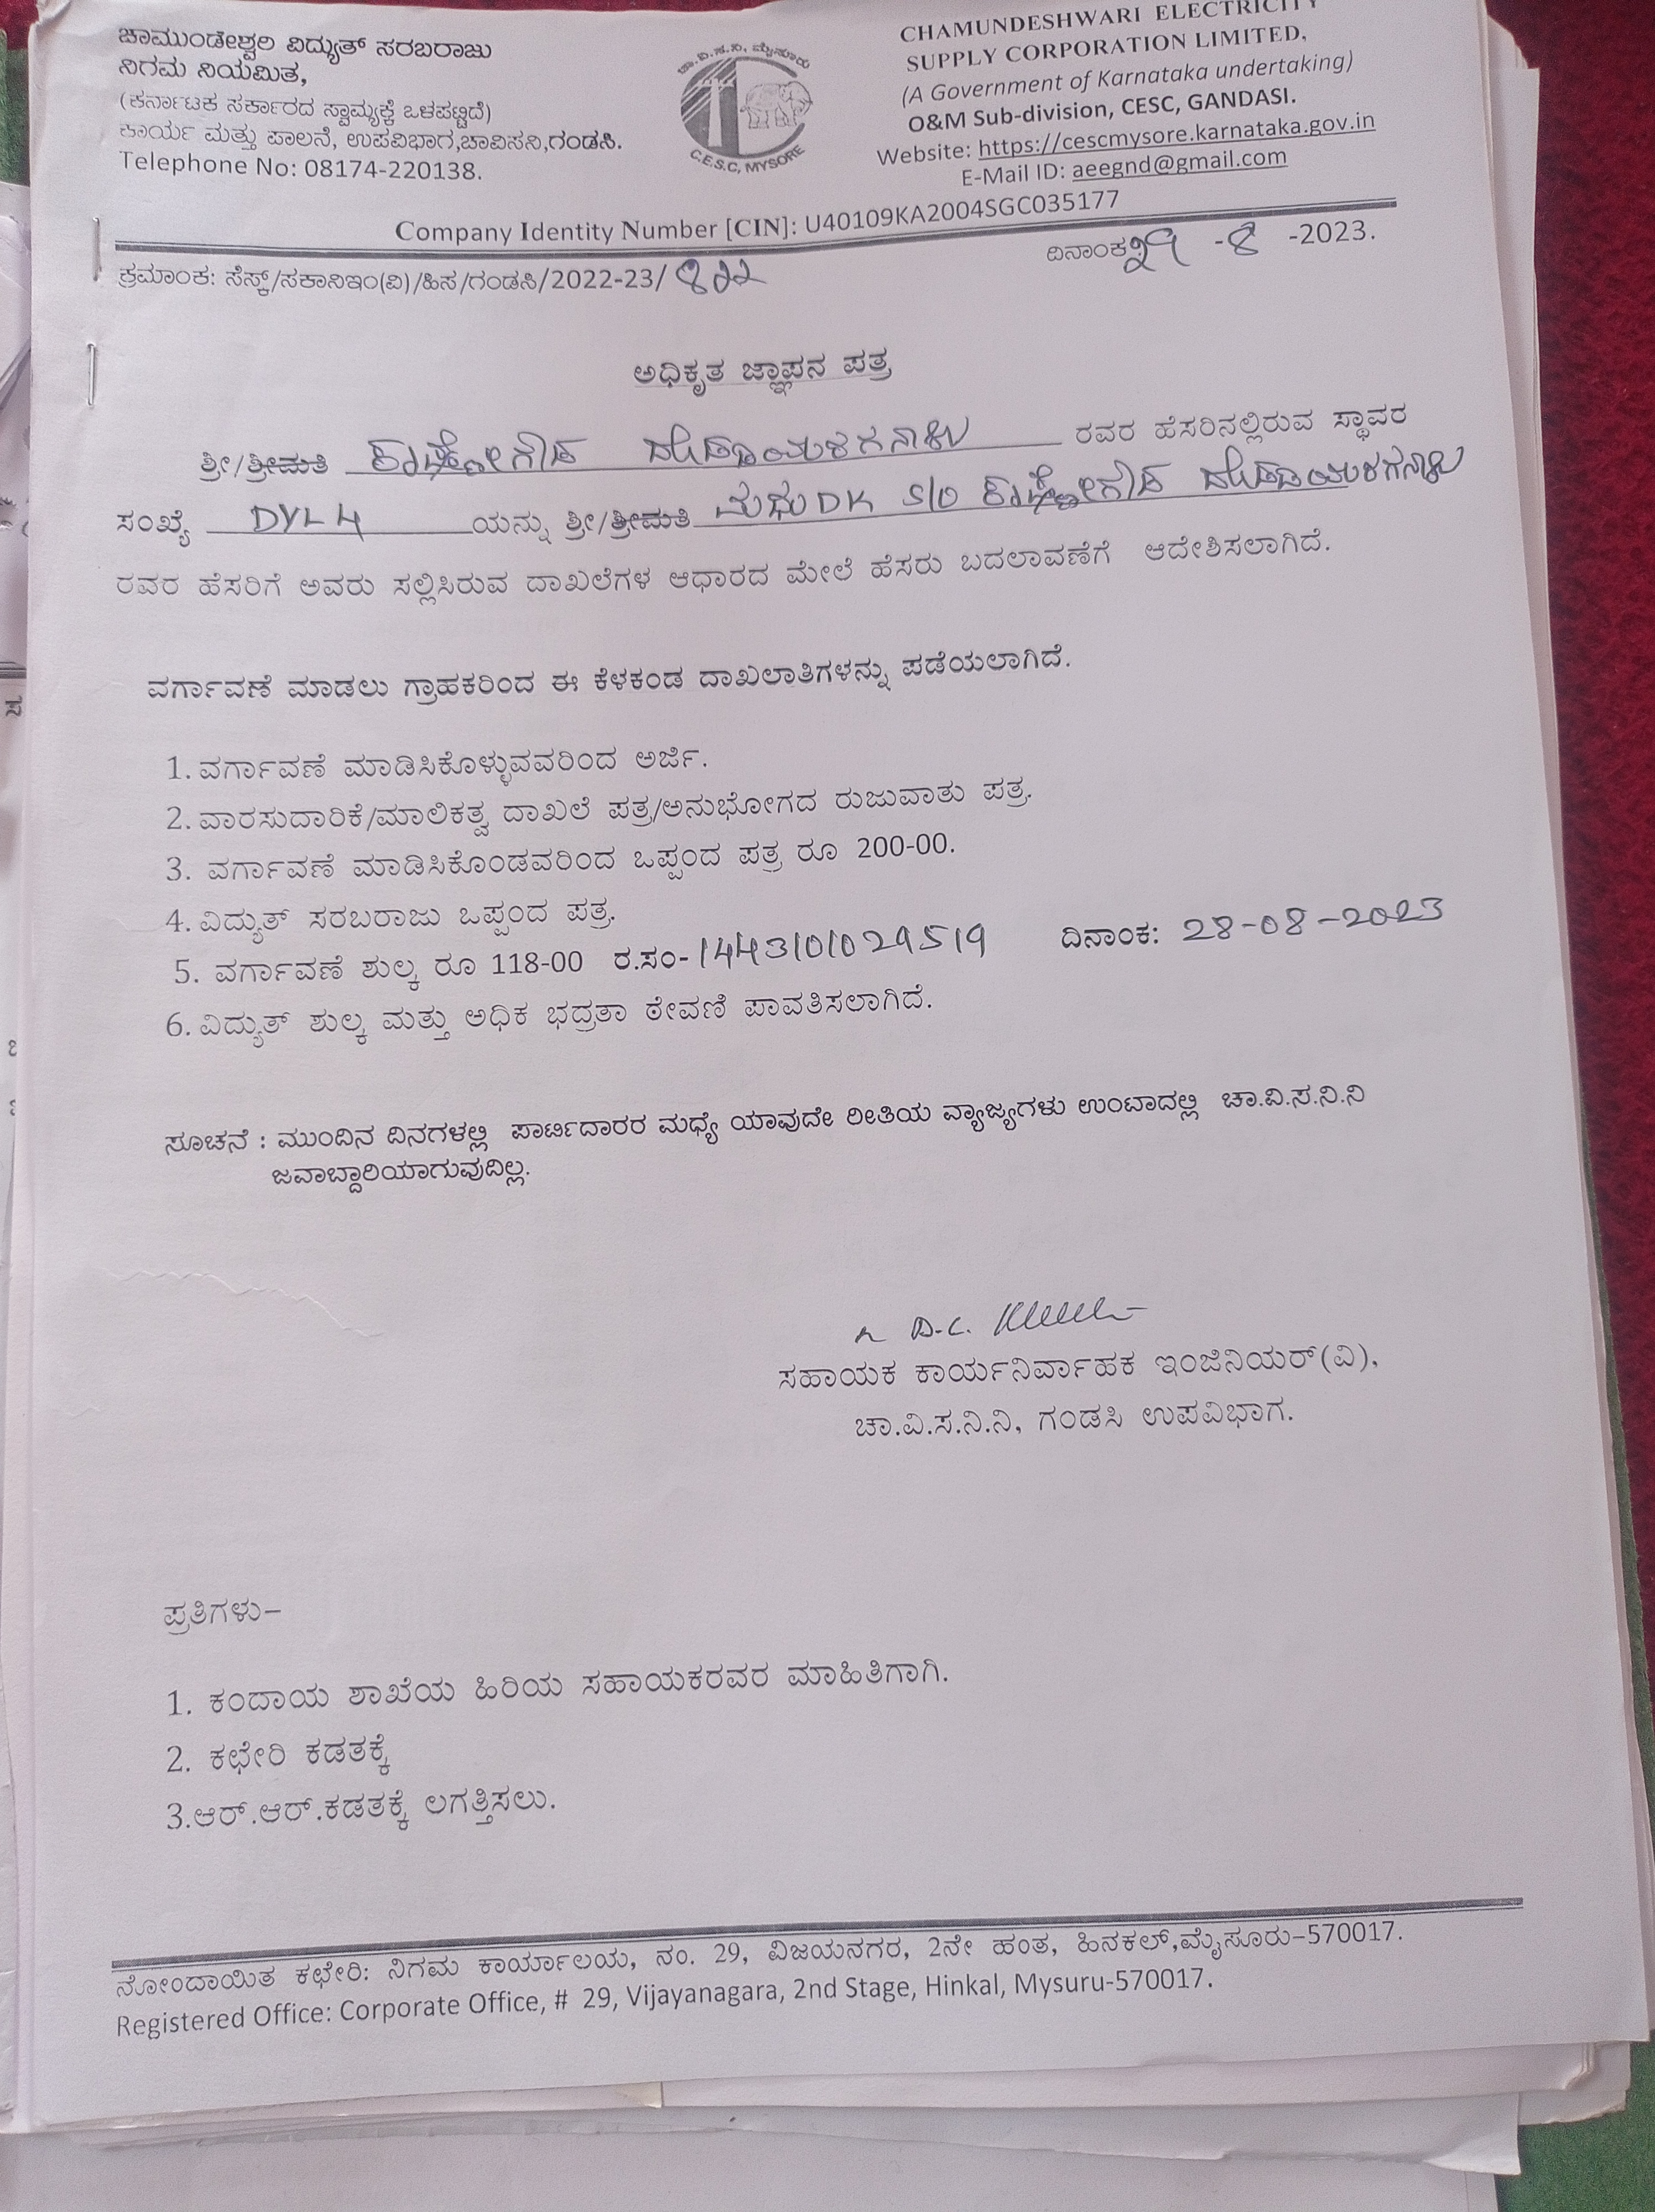 ಚಾಮುಂಡೇಶ್ವರಿ ವಿದ್ಯುತ್ ಸರಬರಾಜು
ನಿಗಮ ನಿಯಮಿತ,
(ಕರ್ನಾಟಕ ಸರ್ಕಾರದ ಸ್ವಾಮ್ಯಕ್ಕೆ ಒಳಪಟ್ಟಿದೆ)
ಕಾರ್ಯ ಮತ್ತು ಪಾಲನೆ, ಉಪವಿಭಾಗ,ಚಾವಿಸನಿ,ಗಂಡಸಿ.
Telephone No: 08174-220138.
ಚಾ.ವಿ.ಸ.ನಿ, ಮೈಸೂರು
C.E.S.C, MYSORE
CHAMUNDESHWARI ELECTRICITY
SUPPLY CORPORATION LIMITED,
(A Government of Karnataka undertaking)
O&M Sub-division, CESC, GANDASI.
Website: https://cescmysore.karnataka.gov.in
E-Mail ID: aeegnd@gmail.com
Company Identity Number [CIN]: U40109KA2004SGC035177
ಕ್ರಮಾಂಕ: ಸೆಸ್ಕ್/ಸಕಾನಿಇಂ(ವಿ)/ಹಿಸ/ಗಂಡಸಿ/2022-23/ 822
ದಿನಾಂಕ: 29 -8 -2023.
ಅಧಿಕೃತ ಜ್ಞಾಪನ ಪತ್ರ
ಶ್ರೀ/ಶ್ರೀಮತಿ ರವರ ಹೆಸರಿನಲ್ಲಿರುವ ಸ್ಥಾವರ
ಸಂಖ್ಯೆ DYL 4 ಯನ್ನು ಶ್ರೀ/ಶ್ರೀಮತಿ ಮಧು DK S/O
ರವರ ಹೆಸರಿಗೆ ಅವರು ಸಲ್ಲಿಸಿರುವ ದಾಖಲೆಗಳ ಆಧಾರದ ಮೇಲೆ ಹೆಸರು ಬದಲಾವಣೆಗೆ ಆದೇಶಿಸಲಾಗಿದೆ.
ವರ್ಗಾವಣೆ ಮಾಡಲು ಗ್ರಾಹಕರಿಂದ ಈ ಕೆಳಕಂಡ ದಾಖಲಾತಿಗಳನ್ನು ಪಡೆಯಲಾಗಿದೆ.
1. ವರ್ಗಾವಣೆ ಮಾಡಿಸಿಕೊಳ್ಳುವವರಿಂದ ಅರ್ಜಿ.
2. ವಾರಸುದಾರಿಕೆ/ಮಾಲಿಕತ್ವ ದಾಖಲೆ ಪತ್ರ/ಅನುಭೋಗದ ರುಜುವಾತು ಪತ್ರ.
3. ವರ್ಗಾವಣೆ ಮಾಡಿಸಿಕೊಂಡವರಿಂದ ಒಪ್ಪಂದ ಪತ್ರ ರೂ 200-00.
4. ವಿದ್ಯುತ್ ಸರಬರಾಜು ಒಪ್ಪಂದ ಪತ್ರ.
5. ವರ್ಗಾವಣೆ ಶುಲ್ಕ ರೂ 118-00 ರ.ಸಂ- 1443101029519 ದಿನಾಂಕ: 28-08-2023
6. ವಿದ್ಯುತ್ ಶುಲ್ಕ ಮತ್ತು ಅಧಿಕ ಭದ್ರತಾ ಠೇವಣಿ ಪಾವತಿಸಲಾಗಿದೆ.
ಸೂಚನೆ : ಮುಂದಿನ ದಿನಗಳಲ್ಲಿ ಪಾರ್ಟಿದಾರರ ಮಧ್ಯೆ ಯಾವುದೇ ರೀತಿಯ ವ್ಯಾಜ್ಯಗಳು ಉಂಟಾದಲ್ಲಿ ಚಾ.ವಿ.ಸ.ನಿ.ನಿ
ಜವಾಬ್ದಾರಿಯಾಗುವುದಿಲ್ಲ.
ಸಹಾಯಕ ಕಾರ್ಯನಿರ್ವಾಹಕ ಇಂಜಿನಿಯರ್(ವಿ),
ಚಾ.ವಿ.ಸ.ನಿ.ನಿ, ಗಂಡಸಿ ಉಪವಿಭಾಗ.
ಪ್ರತಿಗಳು–
1. ಕಂದಾಯ ಶಾಖೆಯ ಹಿರಿಯ ಸಹಾಯಕರವರ ಮಾಹಿತಿಗಾಗಿ.
2. ಕಛೇರಿ ಕಡತಕ್ಕೆ
3.ಆರ್.ಆರ್.ಕಡತಕ್ಕೆ ಲಗತ್ತಿಸಲು.
ನೋಂದಾಯಿತ ಕಛೇರಿ: ನಿಗಮ ಕಾರ್ಯಾಲಯ, ನಂ. 29, ವಿಜಯನಗರ, 2ನೇ ಹಂತ, ಹಿನಕಲ್,ಮೈಸೂರು–570017.
Registered Office: Corporate Office, # 29, Vijayanagara, 2nd Stage, Hinkal, Mysuru-570017.